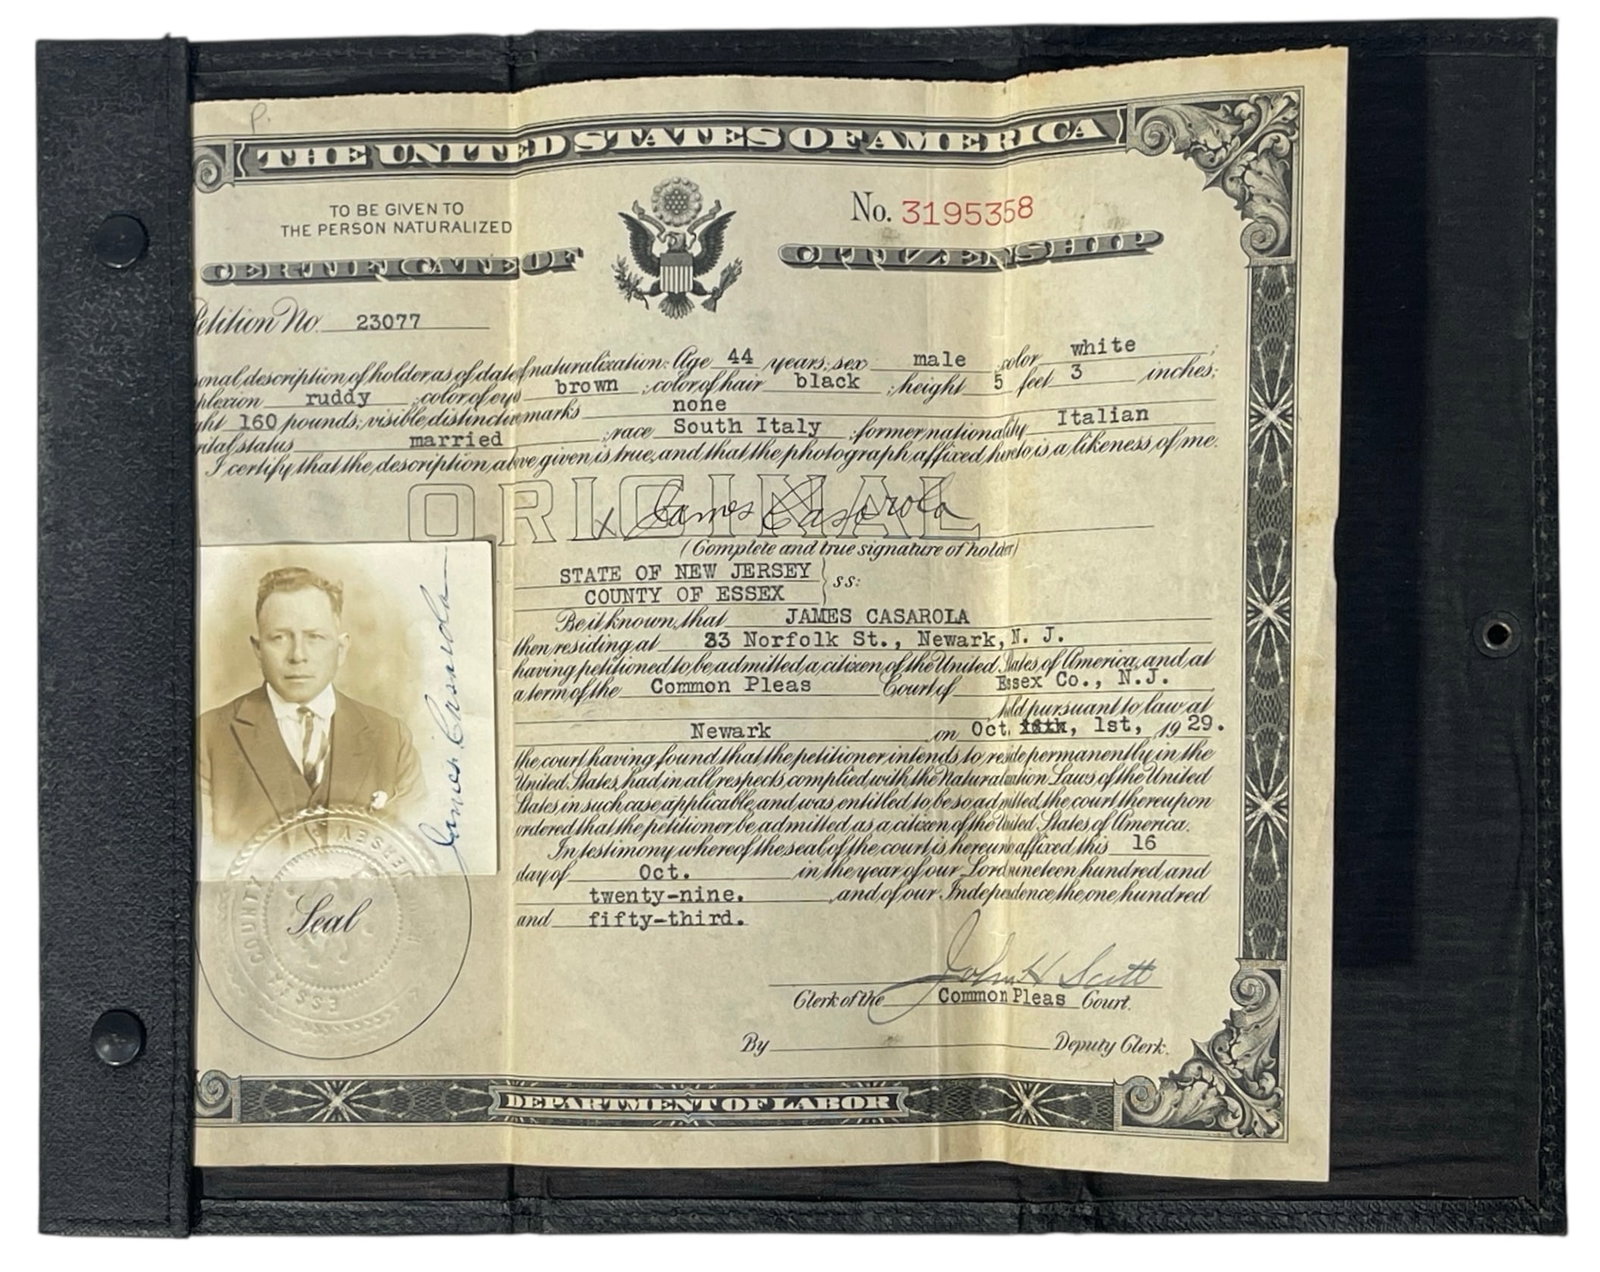 P.
THE UNITED STATES OF AMERICA
TO BE GIVEN TO
THE PERSON NATURALIZED
No. 3195358
CERTIFICATE OF CITIZENSHIP
etition No. 23077
onal description of holder as of date of naturalization: Age 44 years; sex male ; color white ;
plexion ruddy ; color of eyes brown ; color of hair black ; height 5 feet 3 inches;
ght 160 pounds; visible distinctive marks none
rital status married ; race South Italy ; former nationality Italian
I certify that the description above given is true, and that the photograph affixed hereto is a likeness of me.
ORIGINAL
x James Casarola
(Complete and true signature of holder)
STATE OF NEW JERSEY
COUNTY OF ESSEX } ss:
Be it known, that JAMES CASAROLA
then residing at 33 Norfolk St., Newark, N. J.
having petitioned to be admitted a citizen of the United States of America, and at
a term of the Common Pleas Court of Essex Co., N.J.
held pursuant to law at
Newark on Oct. 1st, 1929.
the court having found that the petitioner intends to reside permanently in the
United States, had in all respects complied with the Naturalization Laws of the United
States in such case applicable, and was entitled to be so admitted, the court thereupon
ordered that the petitioner be admitted as a citizen of the United States of America.
In testimony whereof the seal of the court is hereunto affixed this 16
day of Oct. in the year of our Lord nineteen hundred and
twenty-nine. , and of our Independence the one hundred
and fifty-third.
James Casarola
Seal
ESSEX COUNTY
JERSEY
John H Scott
Clerk of the Common Pleas Court.
By Deputy Clerk.
DEPARTMENT OF LABOR